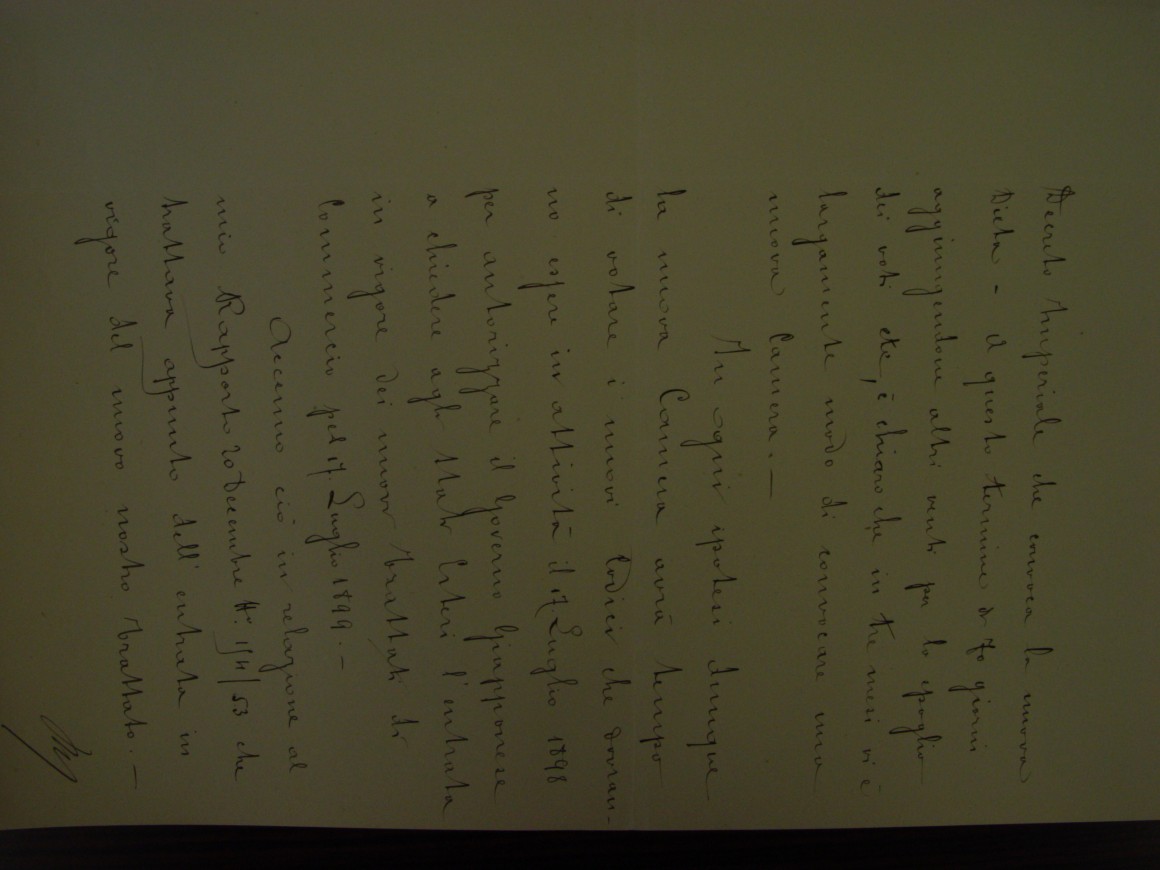 Decreto Imperiale che convoca la nuova
Dieta - A questo termine di 70 giorni
aggiungendone altri venti per lo spoglio
dei voti etc, è chiaro che in tre mesi vi è
largamente modo di convocare una
nuova Camera. —
In ogni ipotesi dunque
la nuova Camera avrà tempo
di votare i nuovi Codici che dovran-
no essere in attività il 17 Luglio 1898
per autorizzare il Governo Giapponese
a chiedere agli Stati Esteri l'entrata
in vigore dei nuovi trattati di
Commercio pel 17 Luglio 1899. —
Accenno ciò in relazione al
mio Rapporto 20 Decembre N.° 151/53 che
trattava appunto dell'entrata in
vigore del nuovo nostro trattato. —